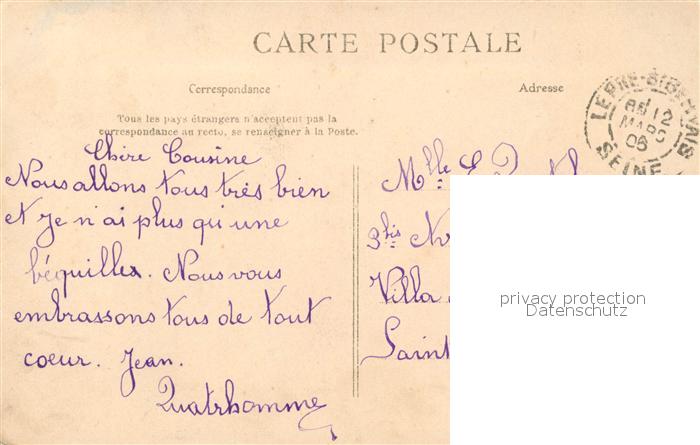 CARTE POSTALE
Correspondance
Adresse
Tous les pays étrangers n'acceptent pas la
correspondance au recto, se renseigner à la Poste.
LE PRÉ-St GERVAIS
12
MARS
06
SEINE
Chère Cousine
Nous allons tous très bien
et je n'ai plus qu'une
béquilles. Nous vous
embrassons tous de tout
coeur. Jean.
Quatrhomme
Mlle
3bis
Villa
Saint
privacy protection
Datenschutz